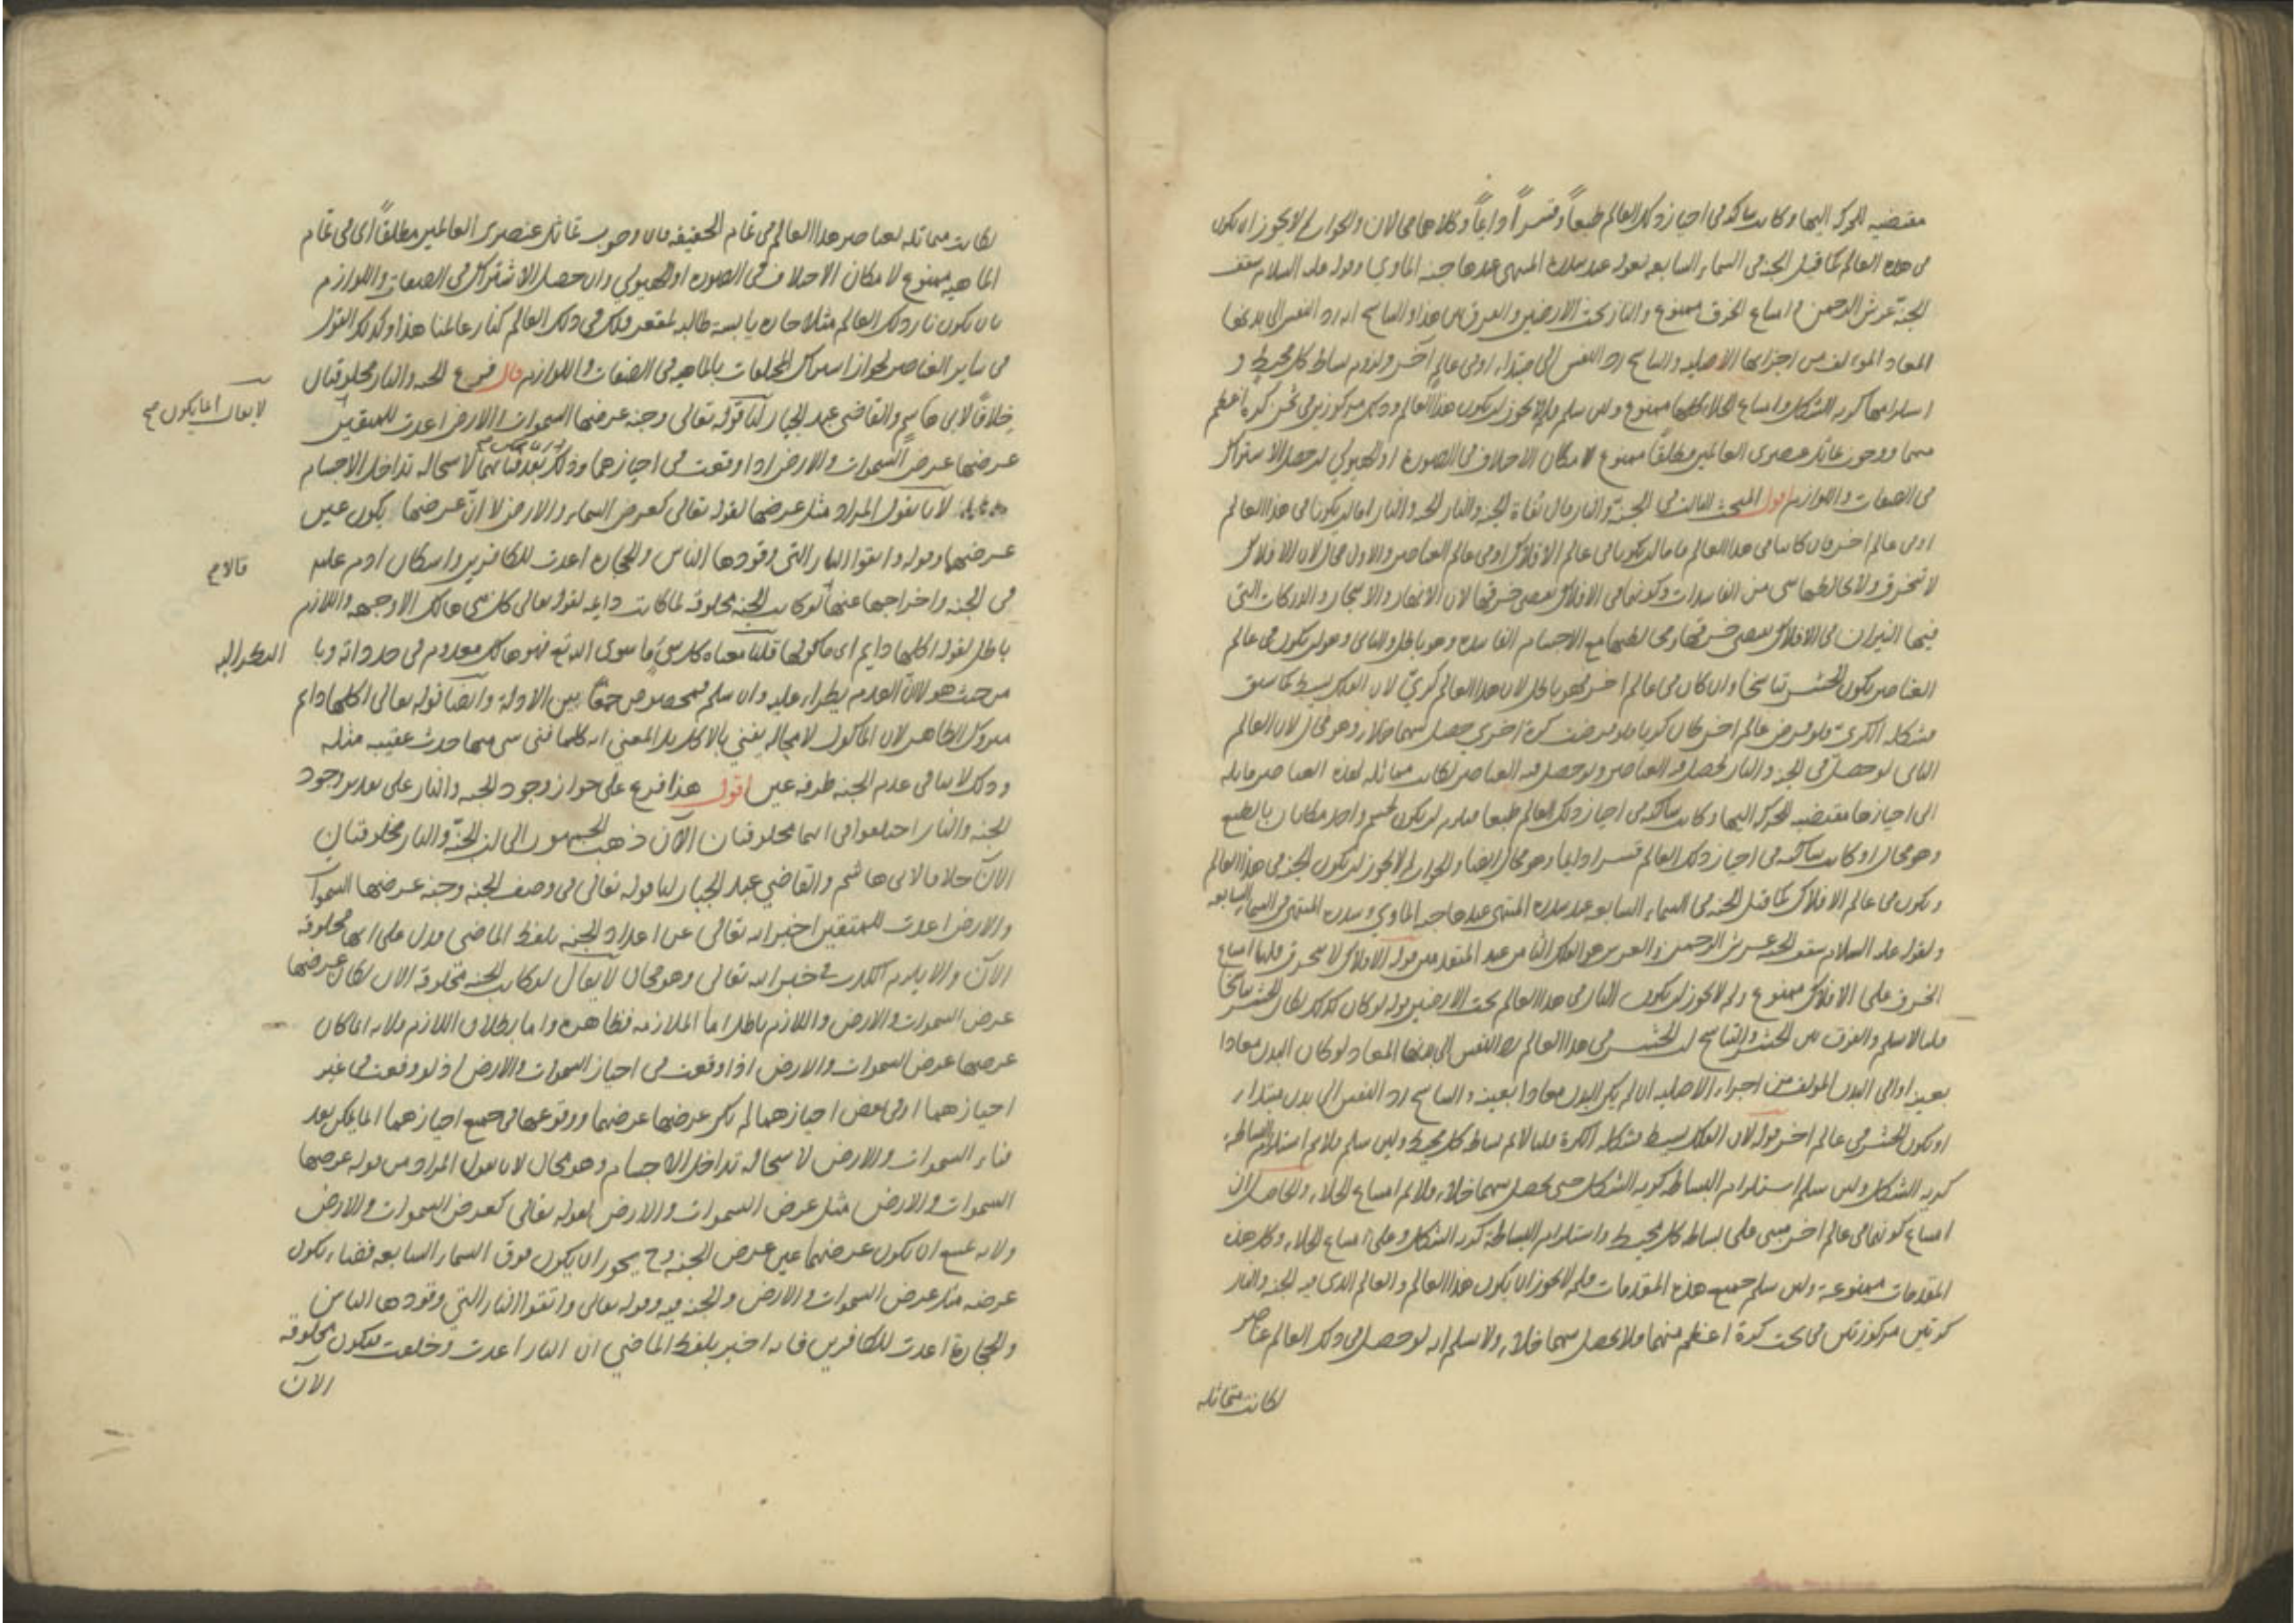 مقتضيه للحركه اليها وكانت ساكنه فى احياز ذلك العالم طبعاً او قسراً دايماً وكلاهما محالان والجواب لم لا يجوز ان يكون
فى هذه العالم كما قيل الجنه فى السماء السابعه لقوله عند سدرة المنتهى عندها جنه الماوي وقوله عليه السلام سقف
الجنة عرش الرحمن وامتناع الخرق ممنوع والنار تحت الارضين والفرق بين هذا والتناسخ انه رد النفس الى بدنها
المعاد المولف من اجزائها الاصليه والتناسخ رد النفس الى مبتداء او فى عالم آخر ولزوم بساطه كل محيط و
استلزامها كريه الشكل وامتناع الخلاء كلها ممنوع ولئن سلم فلم لا يجوز ان يكون هذا العالم وذلك مركوزين فى ثخن كرة اعظم
منهما ووجوب تماثل عنصرى العالمين مطلقاً ممنوع لامكان الاختلاف فى الصورة او الهيولي ان حصل الاشتراك
فى الصفات واللوازم اقول المبحث الثالث فى الجنة والنار قال نفاة الجنه والنار الجنه والنار اما ان يكونا فى هذا العالم
او فى عالم اخر فان كانتا فى هذا العالم فاما ان يكونا فى عالم الافلاك او فى عالم العناصر والاول محال لان الافلاك
لا تنخرق ولا يخالطها شى من الفاسدات وكونهما فى الافلاك يقتضى خرقها لان الانهار والاشجار والدركات التى
فيها النيران فى الافلاك يقتضى خرقها ومخالطتها مع الاجسام الفاسده وهو باطل والثانى وهو ان يكون فى عالم
العناصر يكون الحشر تناسخا وان كان فى عالم اخر فهو باطل لان هذا العالم كريّ لان الفلك بسيط كما سبق
فشكله الكرى ولو فرض عالم اخر كان كريا فلو فرضت كرة اخرى حصل بينهما خلاء وهو محال لان العالم
الثانى لو حصل فى الجنه والنار لحصل فيه العناصر ولو حصل فيه العناصر لكانت مماثله لهذه العناصر مايله
الى احيازها مقتضيه للحركه اليها وكانت ساكنه فى احياز ذلك العالم طبعا فيلزم ان يكون لجسم واحد مكانان بالطبع
وهو محال او كانت ساكنه فى احياز ذلك العالم قسرا دايما وهو محال ايضا والجواب لم لا يجوز ان يكون الجنه فى هذا العالم
ويكون فى عالم الافلاك كما قيل الجنه فى السماء السابعه عند سدره المنتهى عندها جنه الماوي وسدره المنتهى فى السماء السابعه
ولقوله عليه السلام سقف الجنه عرش الرحمن والعرش هو الفلك الثامن عند المتقدمين قوله الافلاك لا تنخرق قلنا امتناع
الخرق على الافلاك ممنوع ولم لا يجوز ان يكون النار فى هذا العالم تحت الارضين قوله لو كان كذلك لكان الحشر تناسخا
قلنا لا نسلم والفرق بين الحشر والتناسخ ان الحشر فى هذا العالم رد النفس الى بدنها المعاد لو كان البدن معادا
بعينه او الى البدن المولف من اجزاء الاصليه ان لم يكن البدن معادا بعينه والتناسخ رد النفس الى بدن مبتداء
او يكون الحشر فى عالم اخر قوله لان الفلك بسيط فشكله الكرة قلنا لا نم بساطه كل محيط ولئن سلم فلا نم استلزام البساطة
كريه الشكل ولئن سلم استلزام البساطه كريه الشكل حتى يحصل بينهما خلاء فلا نم امتناع الخلاء والحاصل ان
امتناع كونهما فى عالم اخر مبنى على بساطه كل محيط واستلزام البساطة كريه الشكل وعلى امتناع الخلاء وكل هذه
المقدمات ممنوعه ولئن سلم جميع هذه المقدمات فلم لا يجوز ان يكون هذا العالم والعالم الذى فيه الجنه والنار
كرتين مركوزتين فى تحت كرة اعظم منهما فلا يحصل بينهما خلاء ولا نسلم انه لو حصل فى ذلك العالم عناصر
لكانت متماثله
لكانت متماثله لعناصر هذا العالم فى تمام الحقيقه فان وجوب تماثل عنصرى العالمين مطلقاً اى فى تمام
الماهيه ممنوع لامكان الاختلاف فى الصوره او الهيولي وان حصل الاشتراك فى الصفات واللوازم
بان يكون نار ذلك العالم مثلا حاره يابسه طالبه لمقعر فلك فى ذلك العالم كنار عالمنا هذا وكذلك القول
فى ساير العناصر لجواز اشتراك المختلفات بالماهيه فى الصفات واللوازم قال فرع الجنه والنار مخلوقتان
خلافاً لابى هاشم والقاضى عبد الجبار لنا قوله تعالى وجنه عرضها السموات والارض اعدت للمتقين
لا يقال انما يكون صح
عرضها عرض السموات والارض اذا وقعت فى احيازهما وذلك بعد فنائهما لاستحاله تداخل الاجسام
لانا نقول المراد مثل عرضها لقوله تعالى كعرض السماء والارض لا انّ عرضها يكون عين
عرضهما وقوله واتقوا النار التى وقودها الناس والحجاره اعدت للكافرين واسكان ادم عليه
قالا صح
فى الجنه واخراجها عنها لو كانت الجنه مخلوقه لما كانت دايمه لقوله تعالى كل شى هالك الا وجهه واللازم
باطل لقوله اكلها دايم اى ماكولها قلنا معناه كل شى مما سوى الله تع فهو هالك معدوم فى حد ذاته وبا
النظر اليه
من حيث هو لا ان العدم يطراء عليه وان سلم فمخصوص جمعًا بين الادلة وايضاً قوله تعالى اكلها دايم
متروك الظاهر لان الماكول لا محاله يفنى بالاكل بل المعني انه كلما فنى شى منها حدث عقيبه مثله
وذلك لا ينافى عدم الجنه طرفه عين اقول هذا فرع على جواز وجود الجنه والنار على تقدير وجود
الجنه والنار اختلفوا فى انهما مخلوقتان الآن ذهب الجمهور الى ان الجنّة والنار مخلوقتان
الآن خلافا لابى هاشم والقاضي عبد الجبار لنا قوله تعالى فى وصف الجنه وجنه عرضها السموات
والارض اعدت للمتقين اخبر الله تعالى عن اعداد الجنه بلفظ الماضى فدل على انها مخلوقه
الآن والا يلزم الكذب فى خبر الله تعالى وهو محال لا يقال لو كانت الجنه مخلوقه الان لكان عرضها
عرض السموات والارض واللازم باطل اما الملازمه فظاهره واما بطلان اللازم فلانه انما كان
عرضها عرض السموات والارض اذا وقعت فى احياز السموات والارض اذ لو وقعت فى غير
احيازهما او فى بعض احيازهما لم يكن عرضها عرضهما ووقوعها فى جميع احيازهما انما يمكن بعد
فناء السموات والارض لاستحاله تداخل الاجسام وهو محال لانا نقول المراد من قوله عرضها
السموات والارض مثل عرض السموات والارض لقوله تعالى كعرض السموات والارض
ولانه يمتنع ان يكون عرضهما عين عرض الجنه وح يجوز ان يكون فوق السماء السابعه فضاء يكون
عرضه مثل عرض السموات والارض والجنه فيه وقوله تعالى واتقوا النار التي وقودها الناس
والحجارة اعدت للكافرين فانه اخبر بلفظ الماضي ان النار اعدت وخلقت فيكون مخلوقه
الآن